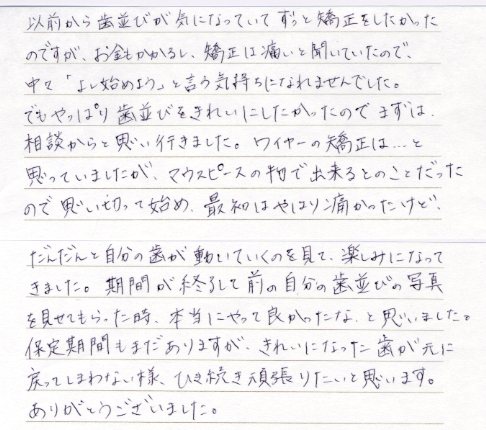 以前から歯並びが気になっていてずっと矯正をしたかった
のですが、お金もかかるし、矯正は痛いと聞いていたので、
中々「よし始めよう」と言う気持ちになれませんでした。
でもやっぱり歯並びをきれいにしたかったのでまずは、
相談からと思い行きました。ワイヤーの矯正は…と
思っていましたが、マウスピースの物で出来るとのことだった
ので思い切って始め、最初はやはり痛かったけど、
だんだんと自分の歯が動いていくのを見て、楽しみになって
きました。期間が終了して前の自分の歯並びの写真
を見せてもらった時、本当にやって良かったな、と思いました。
保定期間もまだありますが、きれいになった歯が元に
戻ってしまわない様、ひき続き頑張りたいと思います。
ありがとうございました。